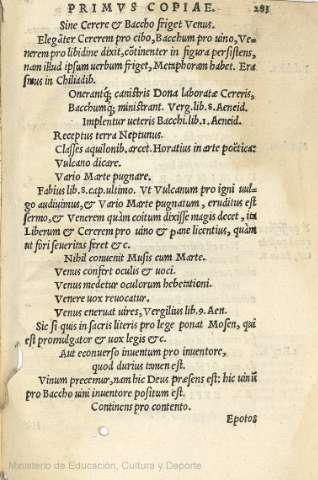 PRIMVS COPIAE. 283
Sine Cerere & Baccho friget Venus.
Elegãter Cererem pro cibo, Bacchum pro uino, Ve-
nerem pro libidine dixit, cõtinenter in figura persistens,
nam illud ipsum uerbum friget, Metaphoram habet. Eras
smus in Chiliadib.
Onerantq; canistris Dona laboratæ Cereris,
Bacchumq; ministrant. Verg. lib. 8. Aeneid.
Implentur ueteris Bacchi. lib. 1. Aeneid.
Receptus terra Neptunus.
Classes aquilonib. arcet. Horatius in arte poëtica:
Vulcano dicare.
Vario Marte pugnare.
Fabius lib. 8. cap. ultimo. Vt Vulcanum pro igni uul-
go audiuimus, & Vario Marte pugnatum, eruditus est
sermo, & Venerem quàm coitum dixisse magis decet, ita
Liberum & Cererem pro uino & pane licentius, quàm
ut fori seueritas feret & c.
Nihil conuenit Musis cum Marte.
Venus confert oculis & uoci.
Venus medetur oculorum hebetationi.
Venere uox reuocatur.
Venus eneruat uires, Vergilius lib. 9. Aen.
Sic si quis in sacris literis pro lege ponat Mosen, qui
est promulgator & uox legis & c.
Aut econuerso inuentum pro inuentore,
quod durius tamen est.
Vinum precemur, nam hic Deus præsens est: hic uinũ
pro Baccho uini inuentore positum est.
Continens pro contento.
Epotos
Ministerio de Educación, Cultura y Deporte